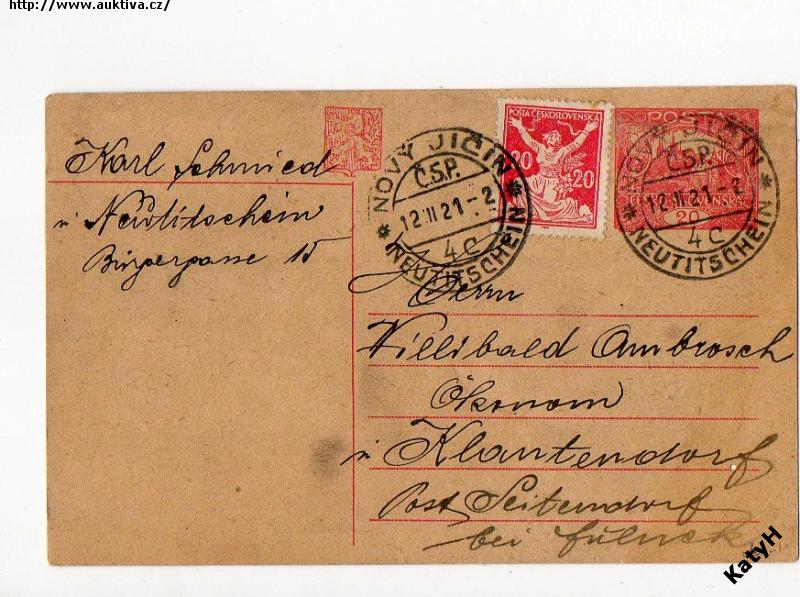 http://www.auktiva.cz/
Karl Schmied
in Neutitschein
Bürgergasse 15
NOVÝ JIČÍN
Č.S.P.
12 II 21 - 2
4c
NEUTITSCHEIN
POŠTA ČESKOSLOVENSKÁ
20 20
POŠTA
20
NOVÝ JIČÍN
Č.S.P.
12 II 21 - 2
4c
NEUTITSCHEIN
Herrn
Willibald Ambrosch
Ökonom
in Klantendorf
Post Seitendorf
bei Fulnek
KatyH